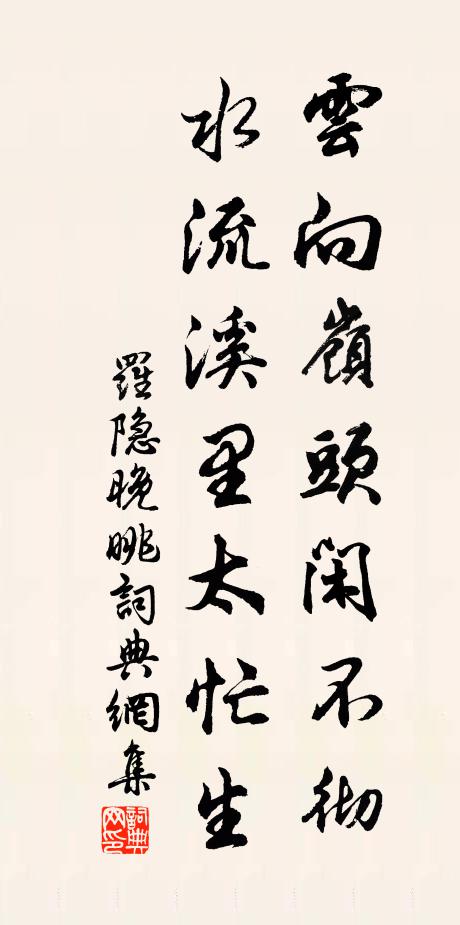 雲向嶺頭閑不徹
水流溪里太忙生
羅隐晚眺詞典網集
詞典网印